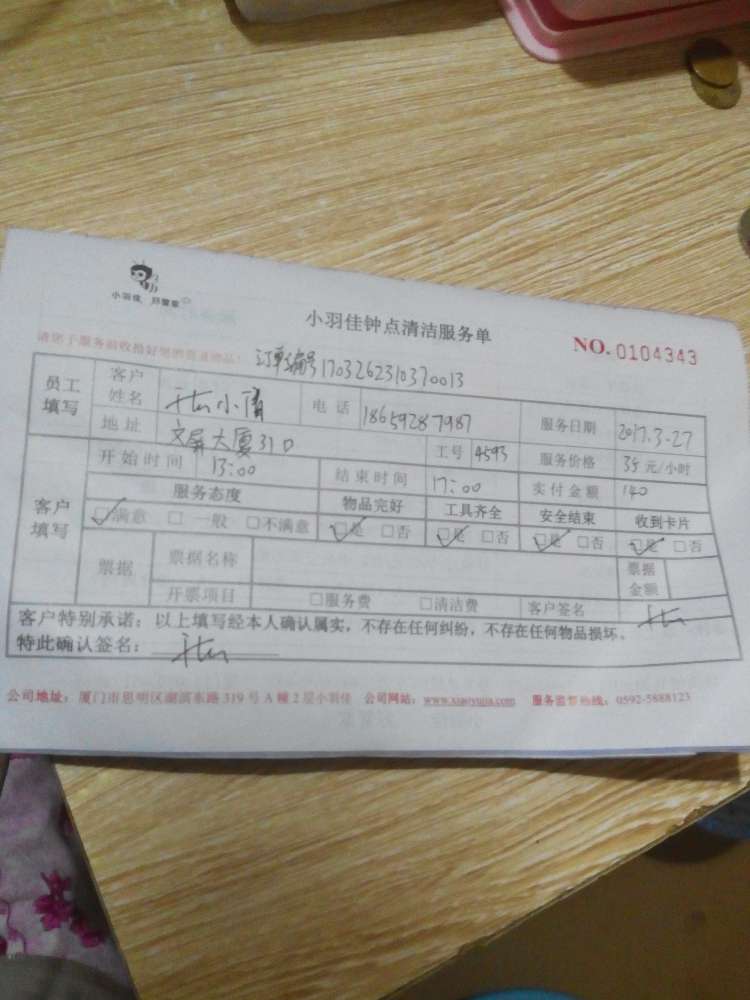 小羽佳 好管家
小羽佳钟点清洁服务单
NO. 0104343
请您于服务前收拾好您的贵重物品! 订单编号1703262310370013
员工填写 客户姓名 小 电话 18659287987 服务日期 2017.3-27
地址 文屏大厦31D 工号 4593 服务价格 35元/小时
客户填写 开始时间 13:00 结束时间 17:00 实付金额 140
服务态度 物品完好 工具齐全 安全结束 收到卡片
☑满意 □一般 □不满意 ☑是 □否 ☑是 □否 ☑是 □否 ☑是 □否
票据 票据名称 票据金额
开票项目 □服务费 □清洁费 客户签名
客户特别承诺:以上填写经本人确认属实,不存在任何纠纷,不存在任何物品损坏。
特此确认签名:
公司地址:厦门市思明区湖滨东路319号A幢2层小羽佳 公司网站:www.xiaoyujia.com 服务监督热线:0592-5888123